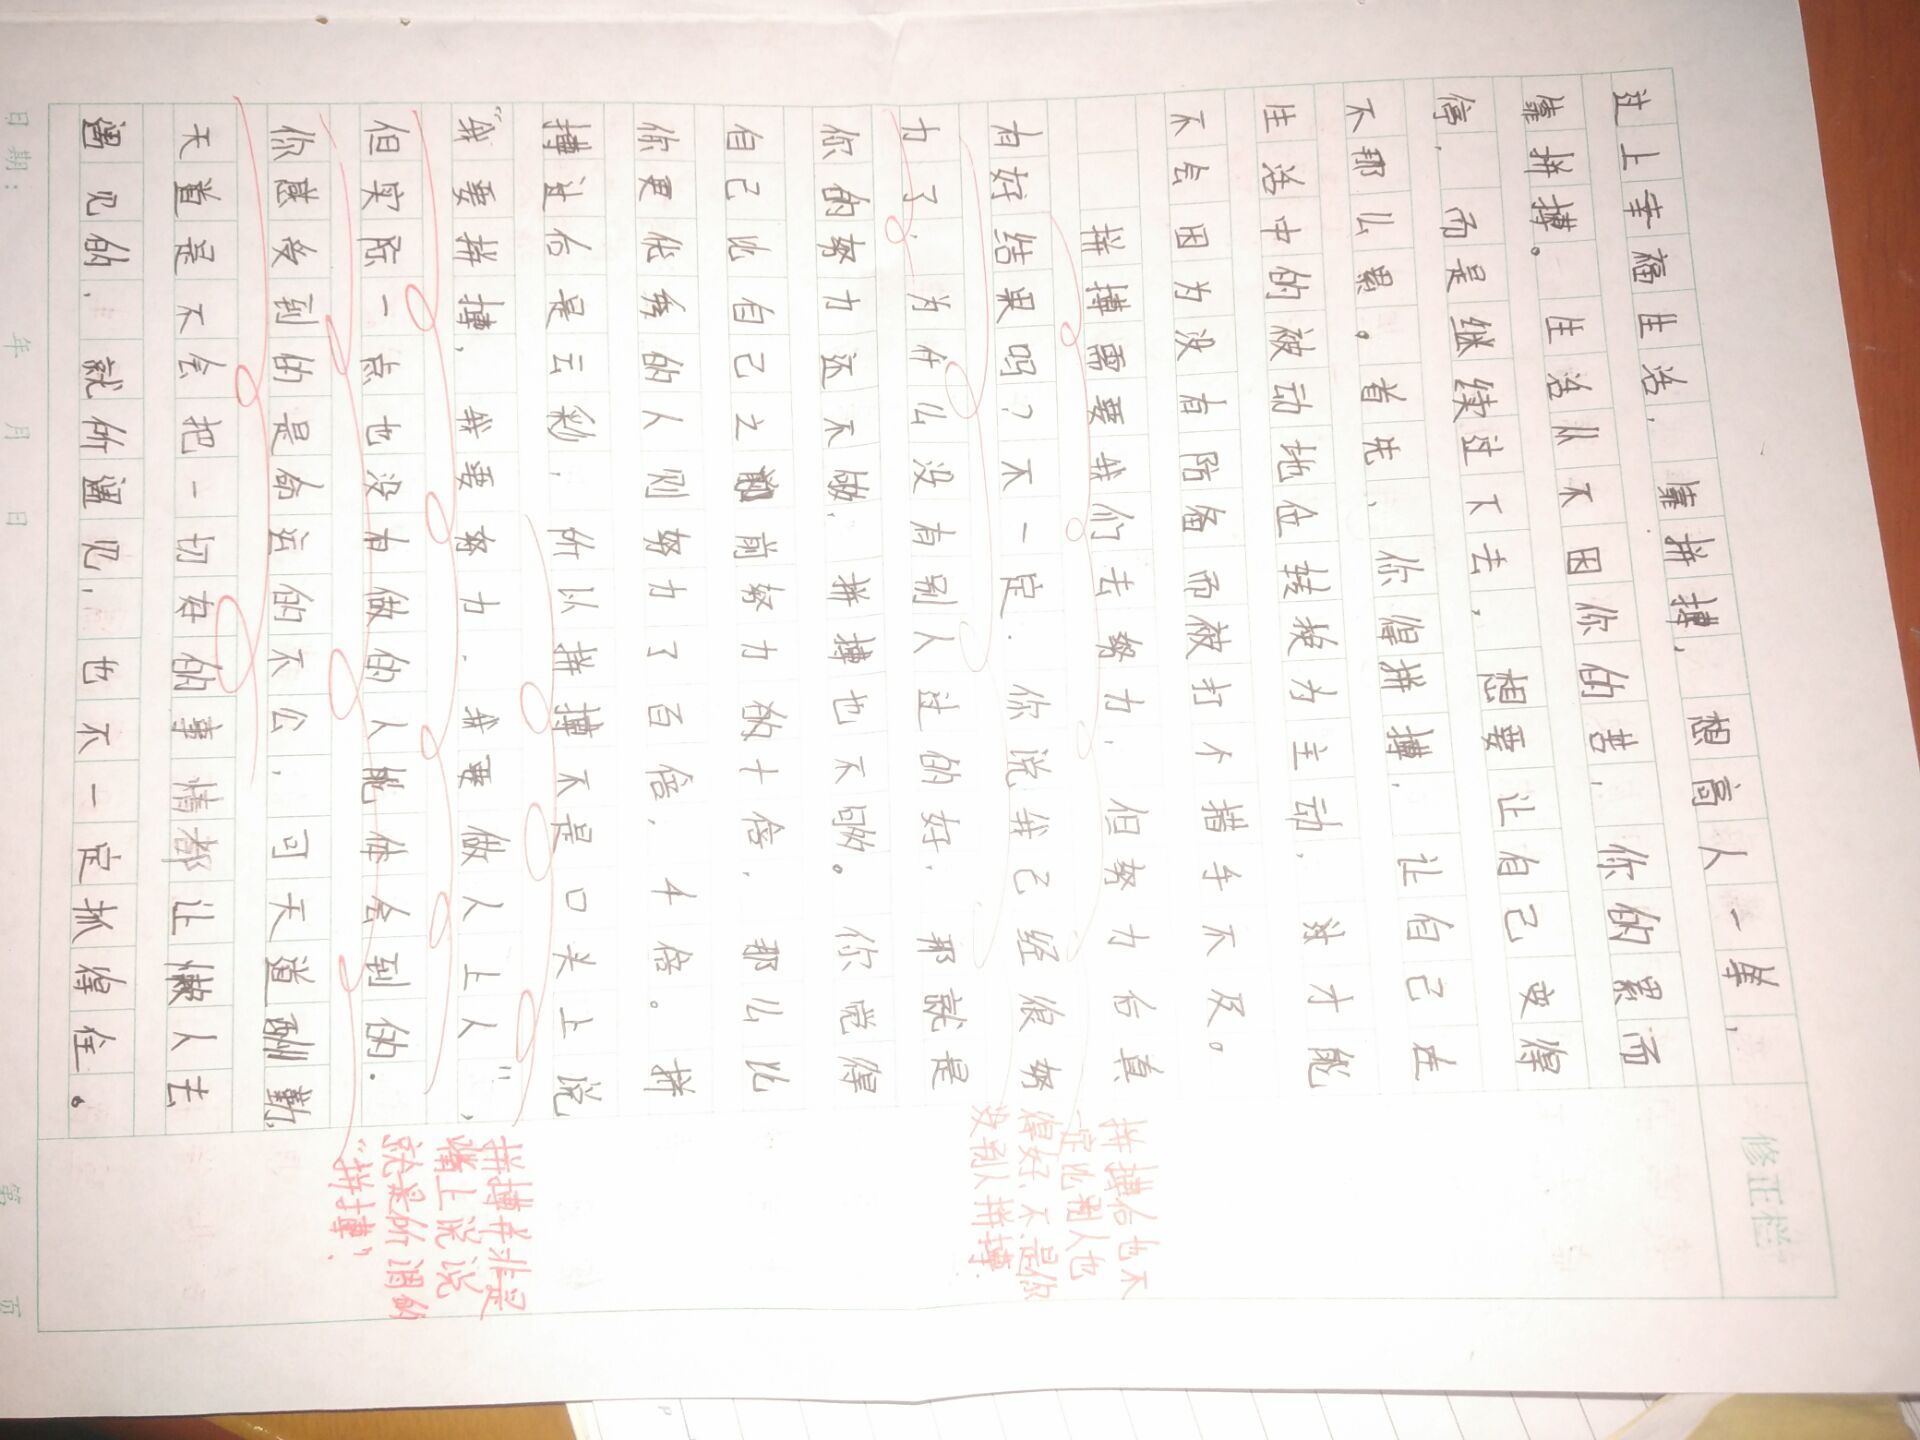 过上幸福生活，靠拼搏，想高人一等，
靠拼搏。生活从不因你的苦，你的累而
停，而是继续过下去，想要让自己变得
不那么累。首先、你得拼搏，让自己在
生活中的被动地位转换为主动，对才能
不会因为没有防备而被打个措手不及。
拼搏需要我们去努力，但努力会真
有好结果吗？不一定．你说我已经很努
力了，为什么没有别人过的好，那就是
你的努力还不够，拼搏也不够。你觉得
自己比自己之前努力的十倍，那么比
你更优秀的人则努力了百倍，千倍。拼
搏过后是云彩，所以拼搏不是口头上说
“我要拼搏，我要努力．我要做人上人”，
但实际一点也没有做的人能体会到的．
你感受到的是命运的不公，可天道酬勤，
天道是不会把一切好的事情都让懒人去
遇见的，就所遇见，也不一定抓得住。
修正栏
拼搏后也不
一定比别人也
得好，不是你
没别人拼搏
拼搏并非是
嘴上说说
就是所谓的
“拼搏”．
日期：　年　月　日
第　页